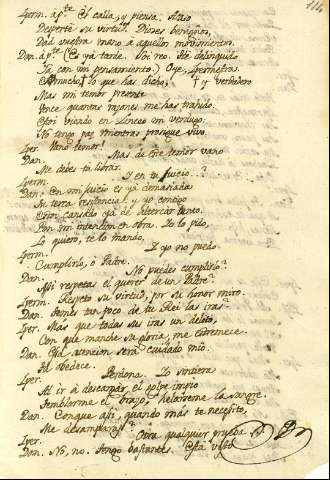 114
Iperm. ap.te El calla, y piensa. Acaso
Desperté su virtud. Dioses benignos,
Dad vuestra mano à aquellos movimientos.
Dan. ap.te (Es yá tarde. Soi reo. He delinquido
Ya con mi pensamiento) Oye, Ipermestra
Mucho lo que has dicho, y verdadero
Mas mi temor presente
Vence quantas razones me has traido.
Estoi viendo en Linceo mi verdugo.
No tengo paz mientras prosigue vivo.
Iper. Vano temor!
Dan. Mas de este temor vano
Me debes tu librar.
Iperm. Y en tu juicio..?
Dan. En mi juicio es yá demasiada
Su terca resistencia, y yo contigo
Estoi cansado yá de altercar tanto.
Pon mi intencion en obra. Te lo pido,
Lo quiero, te lo mando.
Iperm. Y yo no puedo
Cumplirlo, ò Padre.
Dan. No puedes cumplirlo?
Assi respetas el querer de un Padre?
Iperm. Respeto su virtud, por su honor miro.
Dan. Temes tan poco de tu Rei las iras?
Iper. Mas que todas sus iras un delito,
Con que manche su gloria, me estremece.
Dan. Esa atencion será cuidado mio.
Tu obedece.
Iper. Perdona. Yo sintiera
Al ir à descargar el golpe impio
Temblarme el brazo, helarseme la sangre.
Dan. Conque assi, quando más te necesito,
Me desamparas?
Iper. Otra qualquier prueba
Dan. No, no. Tengo bastantes. Está visto